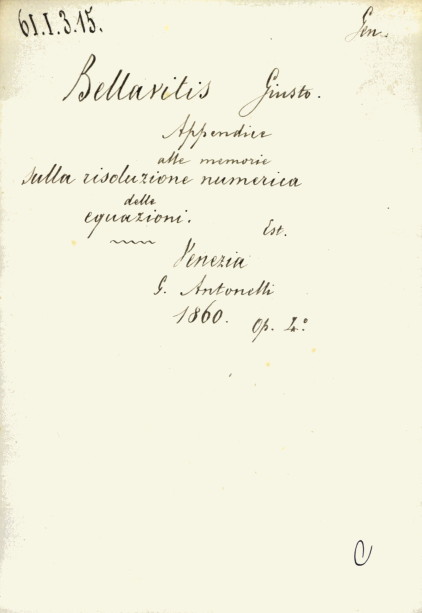 61.I.3.15.
Gen.
Bellavitis Giusto.
Appendice
alle memorie
sulla risoluzione numerica
delle
equazioni.
Est.
Venezia
G. Antonelli
1860. Op. 4.º